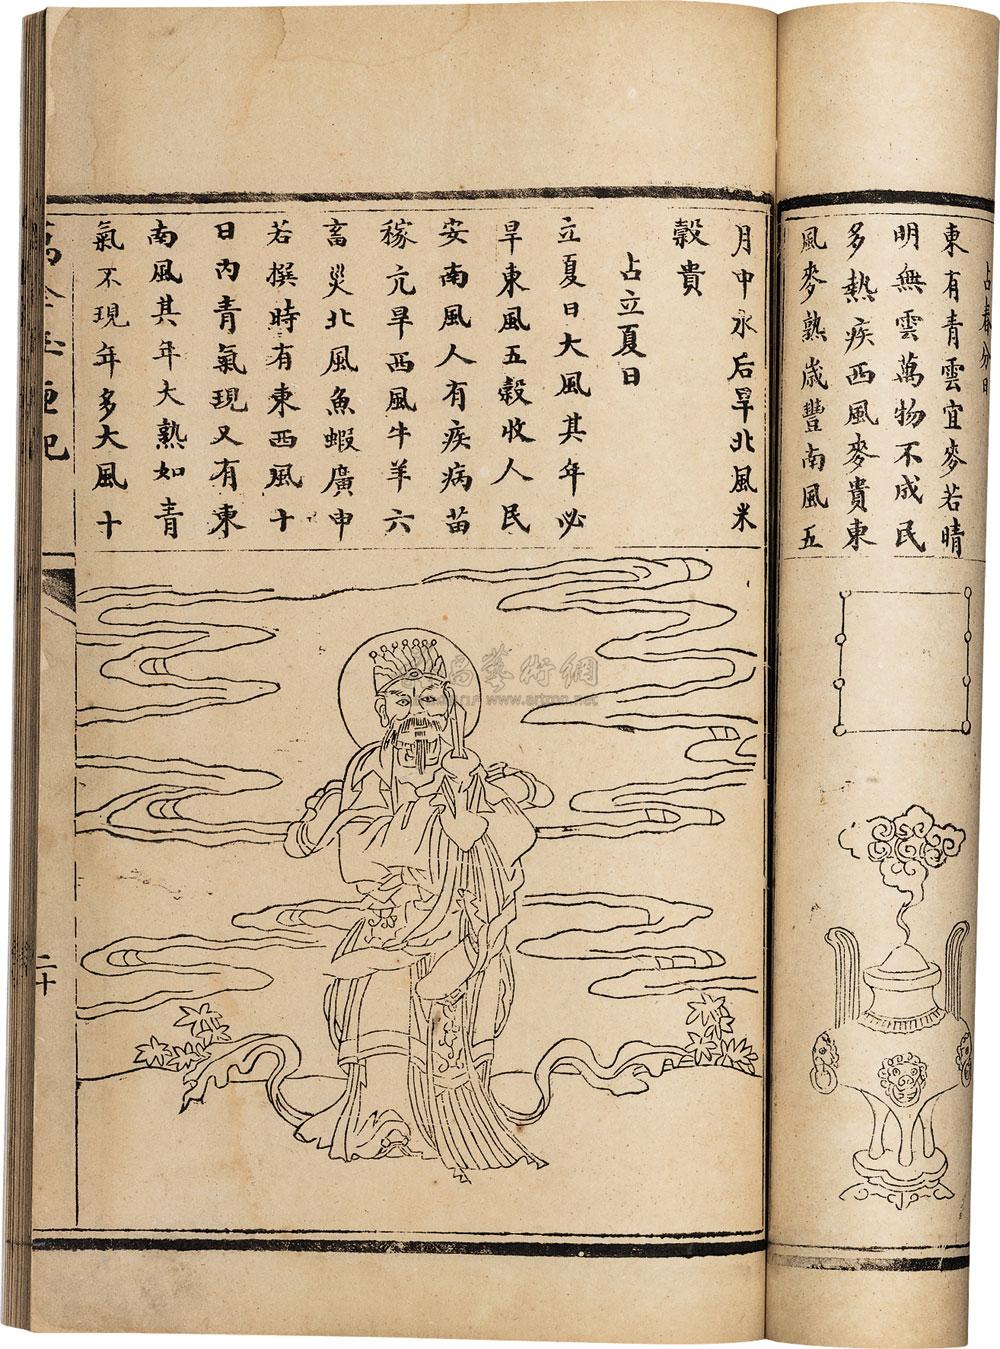 占春分日
東有青雲宜麥若晴
明無雲萬物不成民
多熱疾西風麥貴東
風麥熟歲豐南風五
月中水后旱北風米
穀貴
占立夏日
立夏日大風其年必
旱東風五穀收人民
安南風人有疾病苗
稼亢旱西風牛羊六
畜災北風魚蝦廣申
若撰時有東西風十
日內青氣現又有東
南風其年大熟如青
氣不現年多大風十
二十
藝術網
www.artron.net